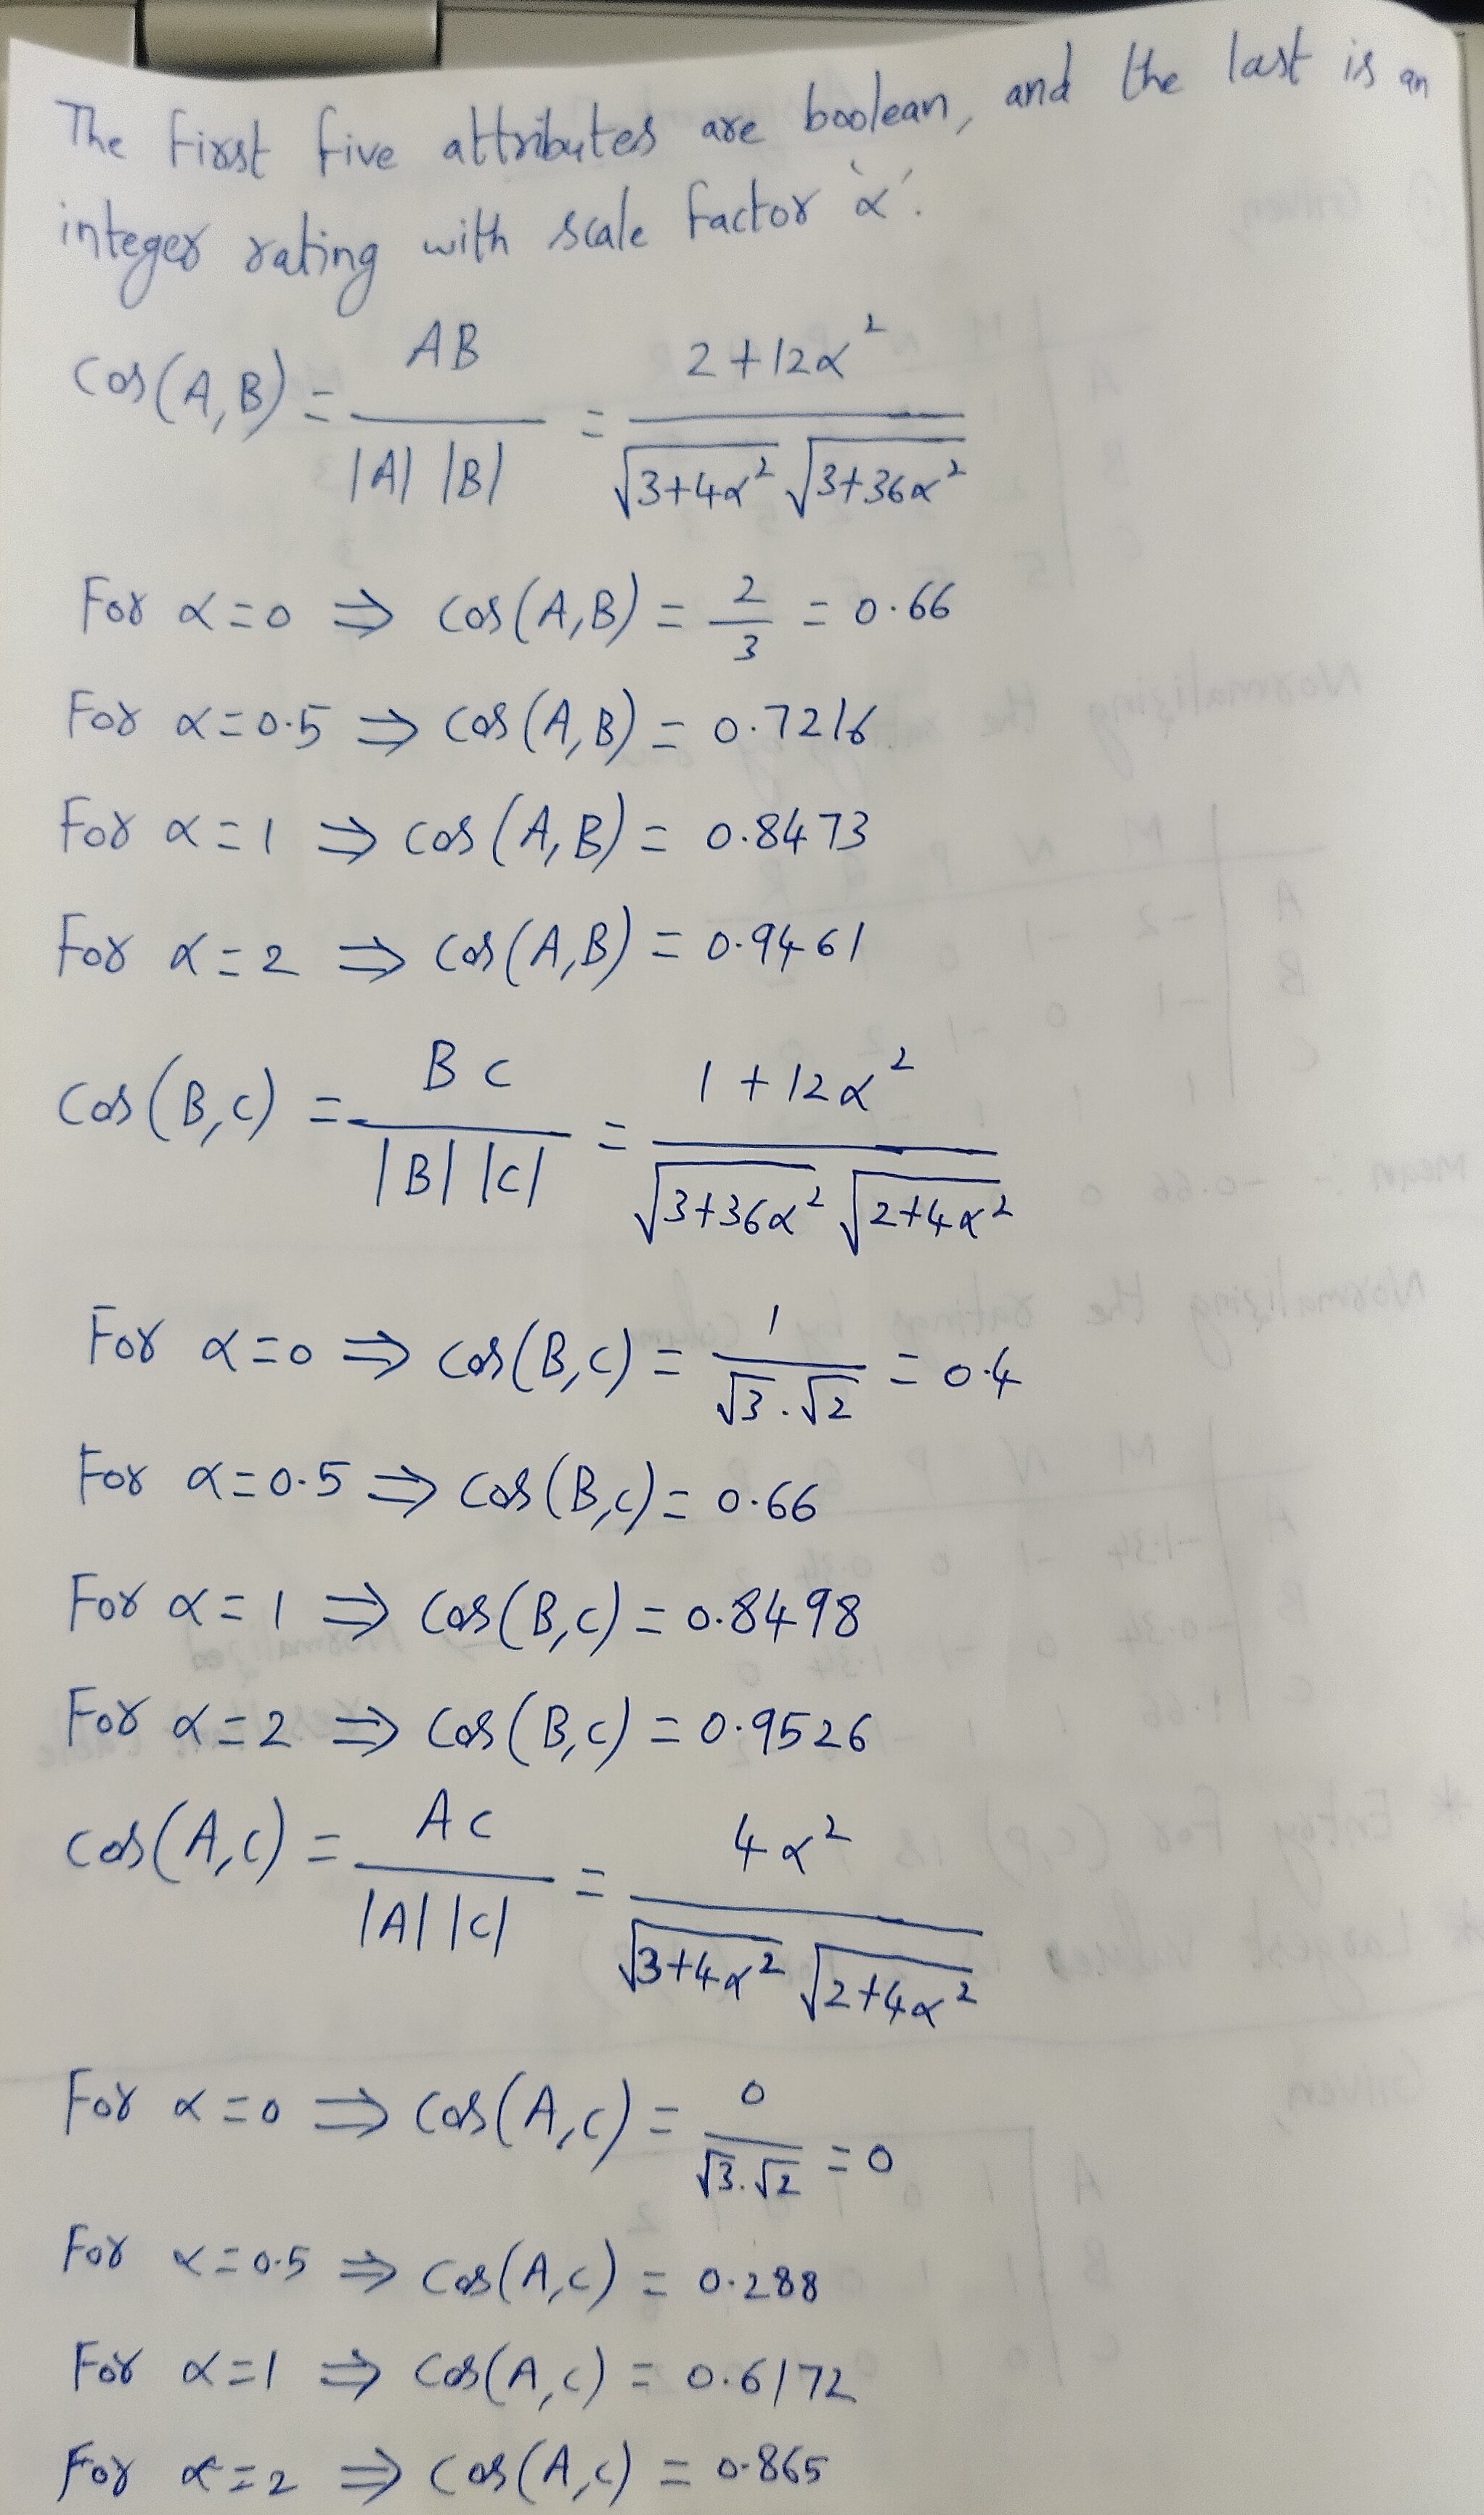 The first five attributes are boolean, and the last is an
integer rating with scale factor 'α'.
Cos(A,B) = AB / |A| |B| = 2+12α² / √3+4α² √3+36α²
For α=0 ⇒ Cos(A,B) = 2/3 = 0.66
For α=0.5 ⇒ Cos(A,B) = 0.7216
For α=1 ⇒ Cos(A,B) = 0.8473
For α=2 ⇒ Cos(A,B) = 0.9461
Cos(B,C) = BC / |B| |C| = 1+12α² / √3+36α² √2+4α²
For α=0 ⇒ Cos(B,C) = 1/√3.√2 = 0.4
For α=0.5 ⇒ Cos(B,C) = 0.66
For α=1 ⇒ Cos(B,C) = 0.8498
For α=2 ⇒ Cos(B,C) = 0.9526
Cos(A,C) = AC / |A| |C| = 4α² / √3+4α² √2+4α²
For α=0 ⇒ Cos(A,C) = 0/√3.√2 = 0
For α=0.5 ⇒ Cos(A,C) = 0.288
For α=1 ⇒ Cos(A,C) = 0.6172
For α=2 ⇒ Cos(A,C) = 0.865